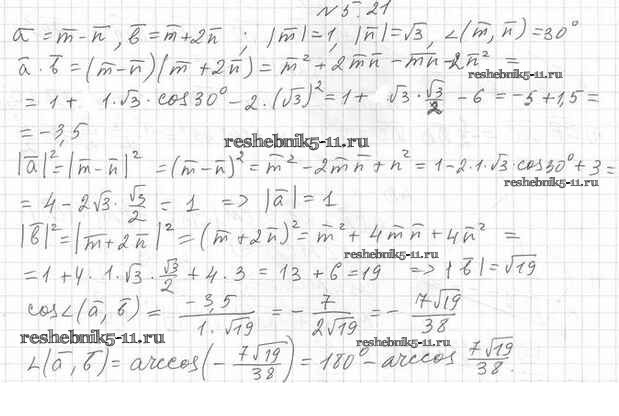 N 5.21
a̅ = m̅ − n̅, b̅ = m̅ + 2n̅ ; |m̅| = 1, |n̅| = √3, ∠(m̅, n̅) = 30°
a̅ · b̅ = (m̅ − n̅)(m̅ + 2n̅) = m̅² + 2m̅n̅ − m̅n̅ − 2n̅² =
reshebnik5-11.ru
= 1 + 1·√3·cos30° − 2·(√3)² = 1 + √3·√3/2 − 6 = −5 + 1,5 =
= −3,5
reshebnik5-11.ru
|a̅|² = |m̅ − n̅|² = (m̅ − n̅)² = m̅² − 2m̅n̅ + n̅² = 1 − 2·1·√3·cos30° + 3 =
reshebnik5-11.ru
= 4 − 2√3·√3/2 = 1 => |a̅| = 1
|b̅|² = |m̅ + 2n̅|² = (m̅ + 2n̅)² = m̅² + 4m̅n̅ + 4n̅² =
reshebnik5-11.ru
= 1 + 4·1·√3·√3/2 + 4·3 = 13 + 6 = 19 => |b̅| = √19
cos∠(a̅, b̅) = −3,5/(1·√19) = −7/(2√19) = −7√19/38
reshebnik5-11.ru
reshebnik5-11.ru
∠(a̅, b̅) = arccos(−7√19/38) = 180° − arccos 7√19/38.